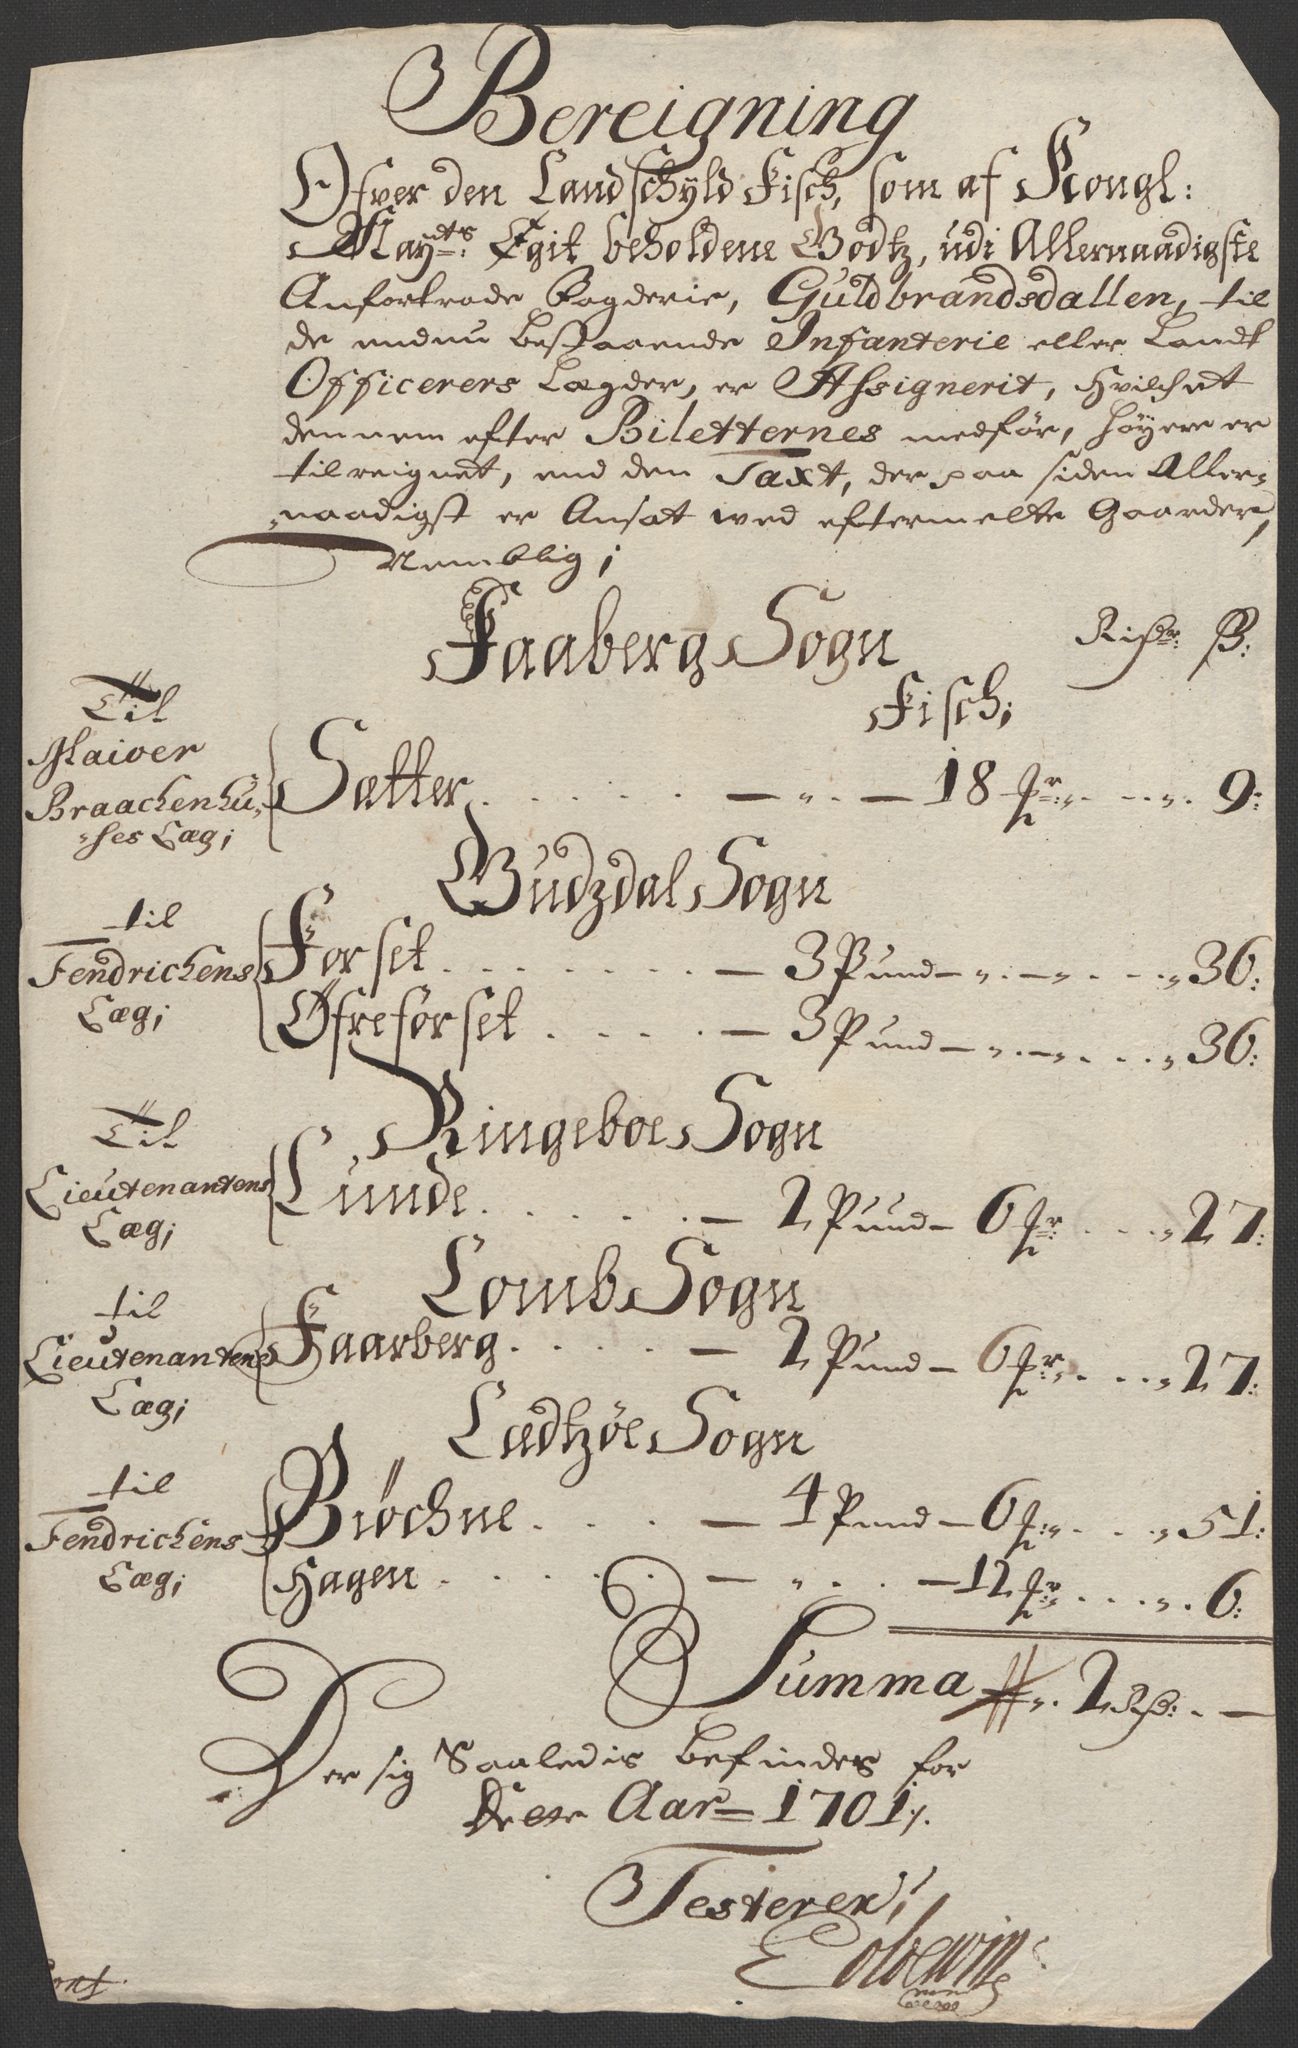 Bereigning
Ofver den Landschyld Fisch, som af Kongl:
Mayts: Egit beholdene Godtz, udi Allernaadigste
Anfortrode Fogderie, Guldbrandsdallen, til
de endnu bestaaende Infanterie eller Landt
Officerers Lægder, er Assignerit, hvilchet
dennem efter Biletternes medför, höyere er
tilreignet, end den Taxt, der paa siden Aller-
naadigst er Ansat wed eftermelte Gaarder,
Nemblig;
Faaberg Sogn
Rixdr: ß:
Fisch;
Til
Maior
Braachenhu-
ses Læg;
Sætter . . . . . — „ . — 18 mr: „ . . . „ . 9:
Gudzdal Sogn
til
Fendrichens
Læg;
Forset . . . . . . — 3 Pund — „ . — „ . . . „ 36:
Øfreforset . . . . — 3 Pund — „ . — „ . . . „ 36:
Ringeboe Sogn
Til
Lieutenantens
Læg;
Lunde . . . . . — 2 Pund — 6 mr . . . „ 27:
Lomb Sogn
til
Lieutenantens
Læg;
Faarberg . . . . — 2 Pund — 6 mr: „ . . . „ 27:
Ladhöe Sogn
til
Fendrichens
Læg;
Biöchne . . . . — 4 Pund — 6 mr: „ . . . „ 51:
Hagen . . . . . — „ . . — 12 mr: „ . . . „ . 6:
Summa „ . 2 Rdr: . —
Der sig Saaledis befindes for
Dette Aar — 1701.
Testerer;